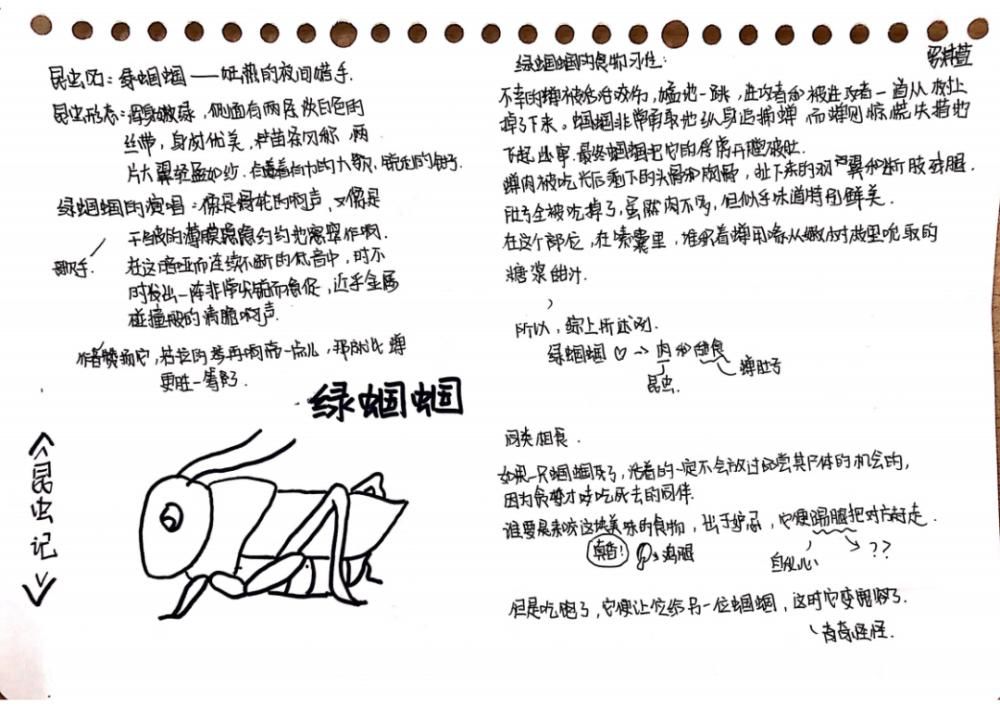 昆虫名：绿蝈蝈——娴熟的夜间猎手.
昆虫形态：浑身嫩绿，侧面有两条淡白色的
丝带，身材优美，苗条匀称，两
片大翼轻盈如纱.
绿蝈蝈的演唱：像是滑轮的响声，又像是
干皱的薄膜隐隐约约地窸窣作响.
歌手.
在这喑哑而连续不断的低音中，时不
时发出一阵非常尖锐而急促，近乎金属
碰撞般的清脆响声.
作者赞扬它，若拉的琴再响亮一点儿，那就比蝉
更胜一筹了.
绿蝈蝈
《昆虫记》
绿蝈蝈的食物习性：
不幸的蝉被活活咬伤，猛地一跳，进攻者和被进攻者一首从树上
掉了下来。蝈蝈非常勇敢地纵身追捕蝉而蝉则惊慌失措地
飞起出窜.最终蝈蝈把它的俘虏开膛破肚.
蝉肉被吃光后剩下的头骨和胸骨，扯下来的羽翼和断肢残腿.
肚子全被吃掉了，虽然肉不多，但似乎味道特别鲜美.
在这个部位，在嗉囊里，堆积着蝉用喙从嫩树枝里吮取的
糖浆甜汁.
所以，综上所述则.
绿蝈蝈♡→肉和甜食
昆虫.
蝉肚子
同类相食.
如果一只蝈蝈死了，活着的一定不会放过品尝其尸体的机会的，
因为食尽才吃死去的同伴.
谁要是来咬这块美味的食物，出于护品，它便踢腿把对方赶走.
鸡腿
自私心
??
但是吃饱了，它便让位给另一位蝈蝈，这时它变宽容了.
奇奇怪怪.